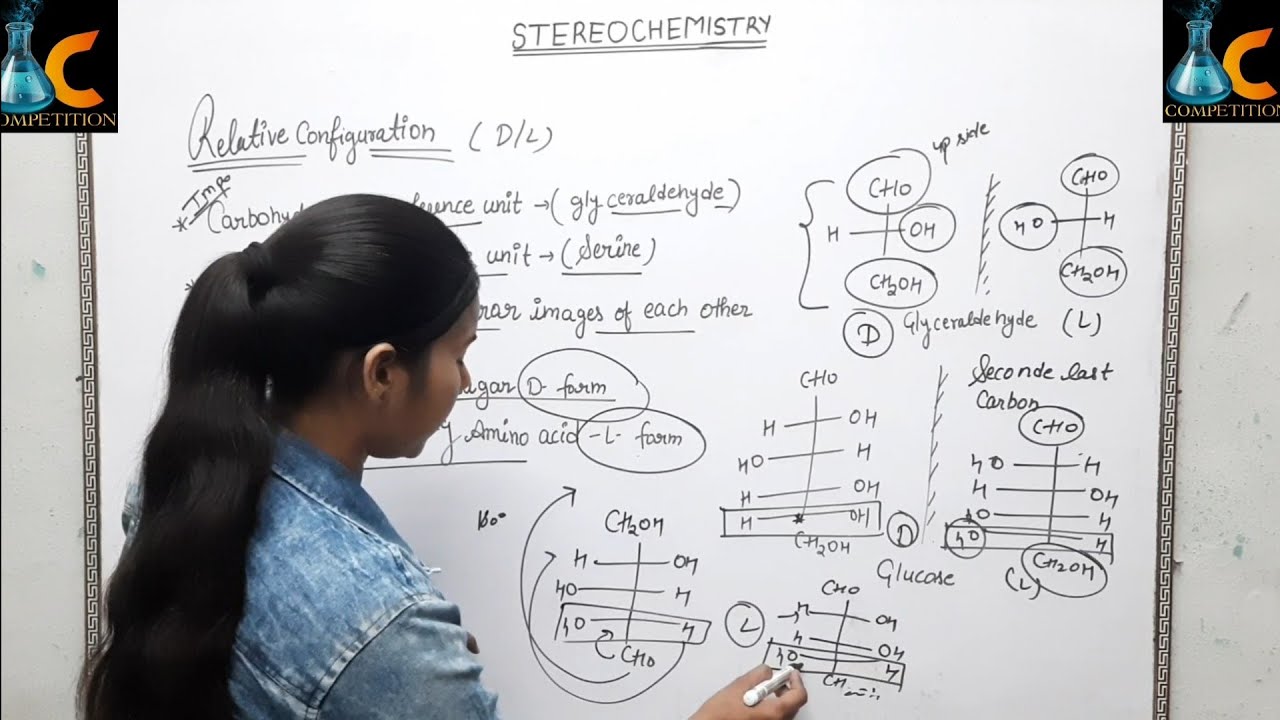 STEREOCHEMISTRY
C
COMPETITION
C
COMPETITION
Relative Configuration (D/L)
* Imp
Carbohyd erence unit → (glyceraldehyde)
unit → (Serine)
rrar images of each other
ugar D- form
y Amino acid -L- form
up side
CHO
H OH
CH2OH
CHO
HO H
CH2OH
D Glyceraldehyde (L)
CHO
H OH
HO H
H OH
H OH
CH2OH
D
Glucose
Seconde last
Carbon
CHO
HO H
H OH
HO H
HO H
CH2OH
(L)
180°
CH2OH
H OH
HO H
HO H
CHO
L
CHO
H OH
H OH
HO H